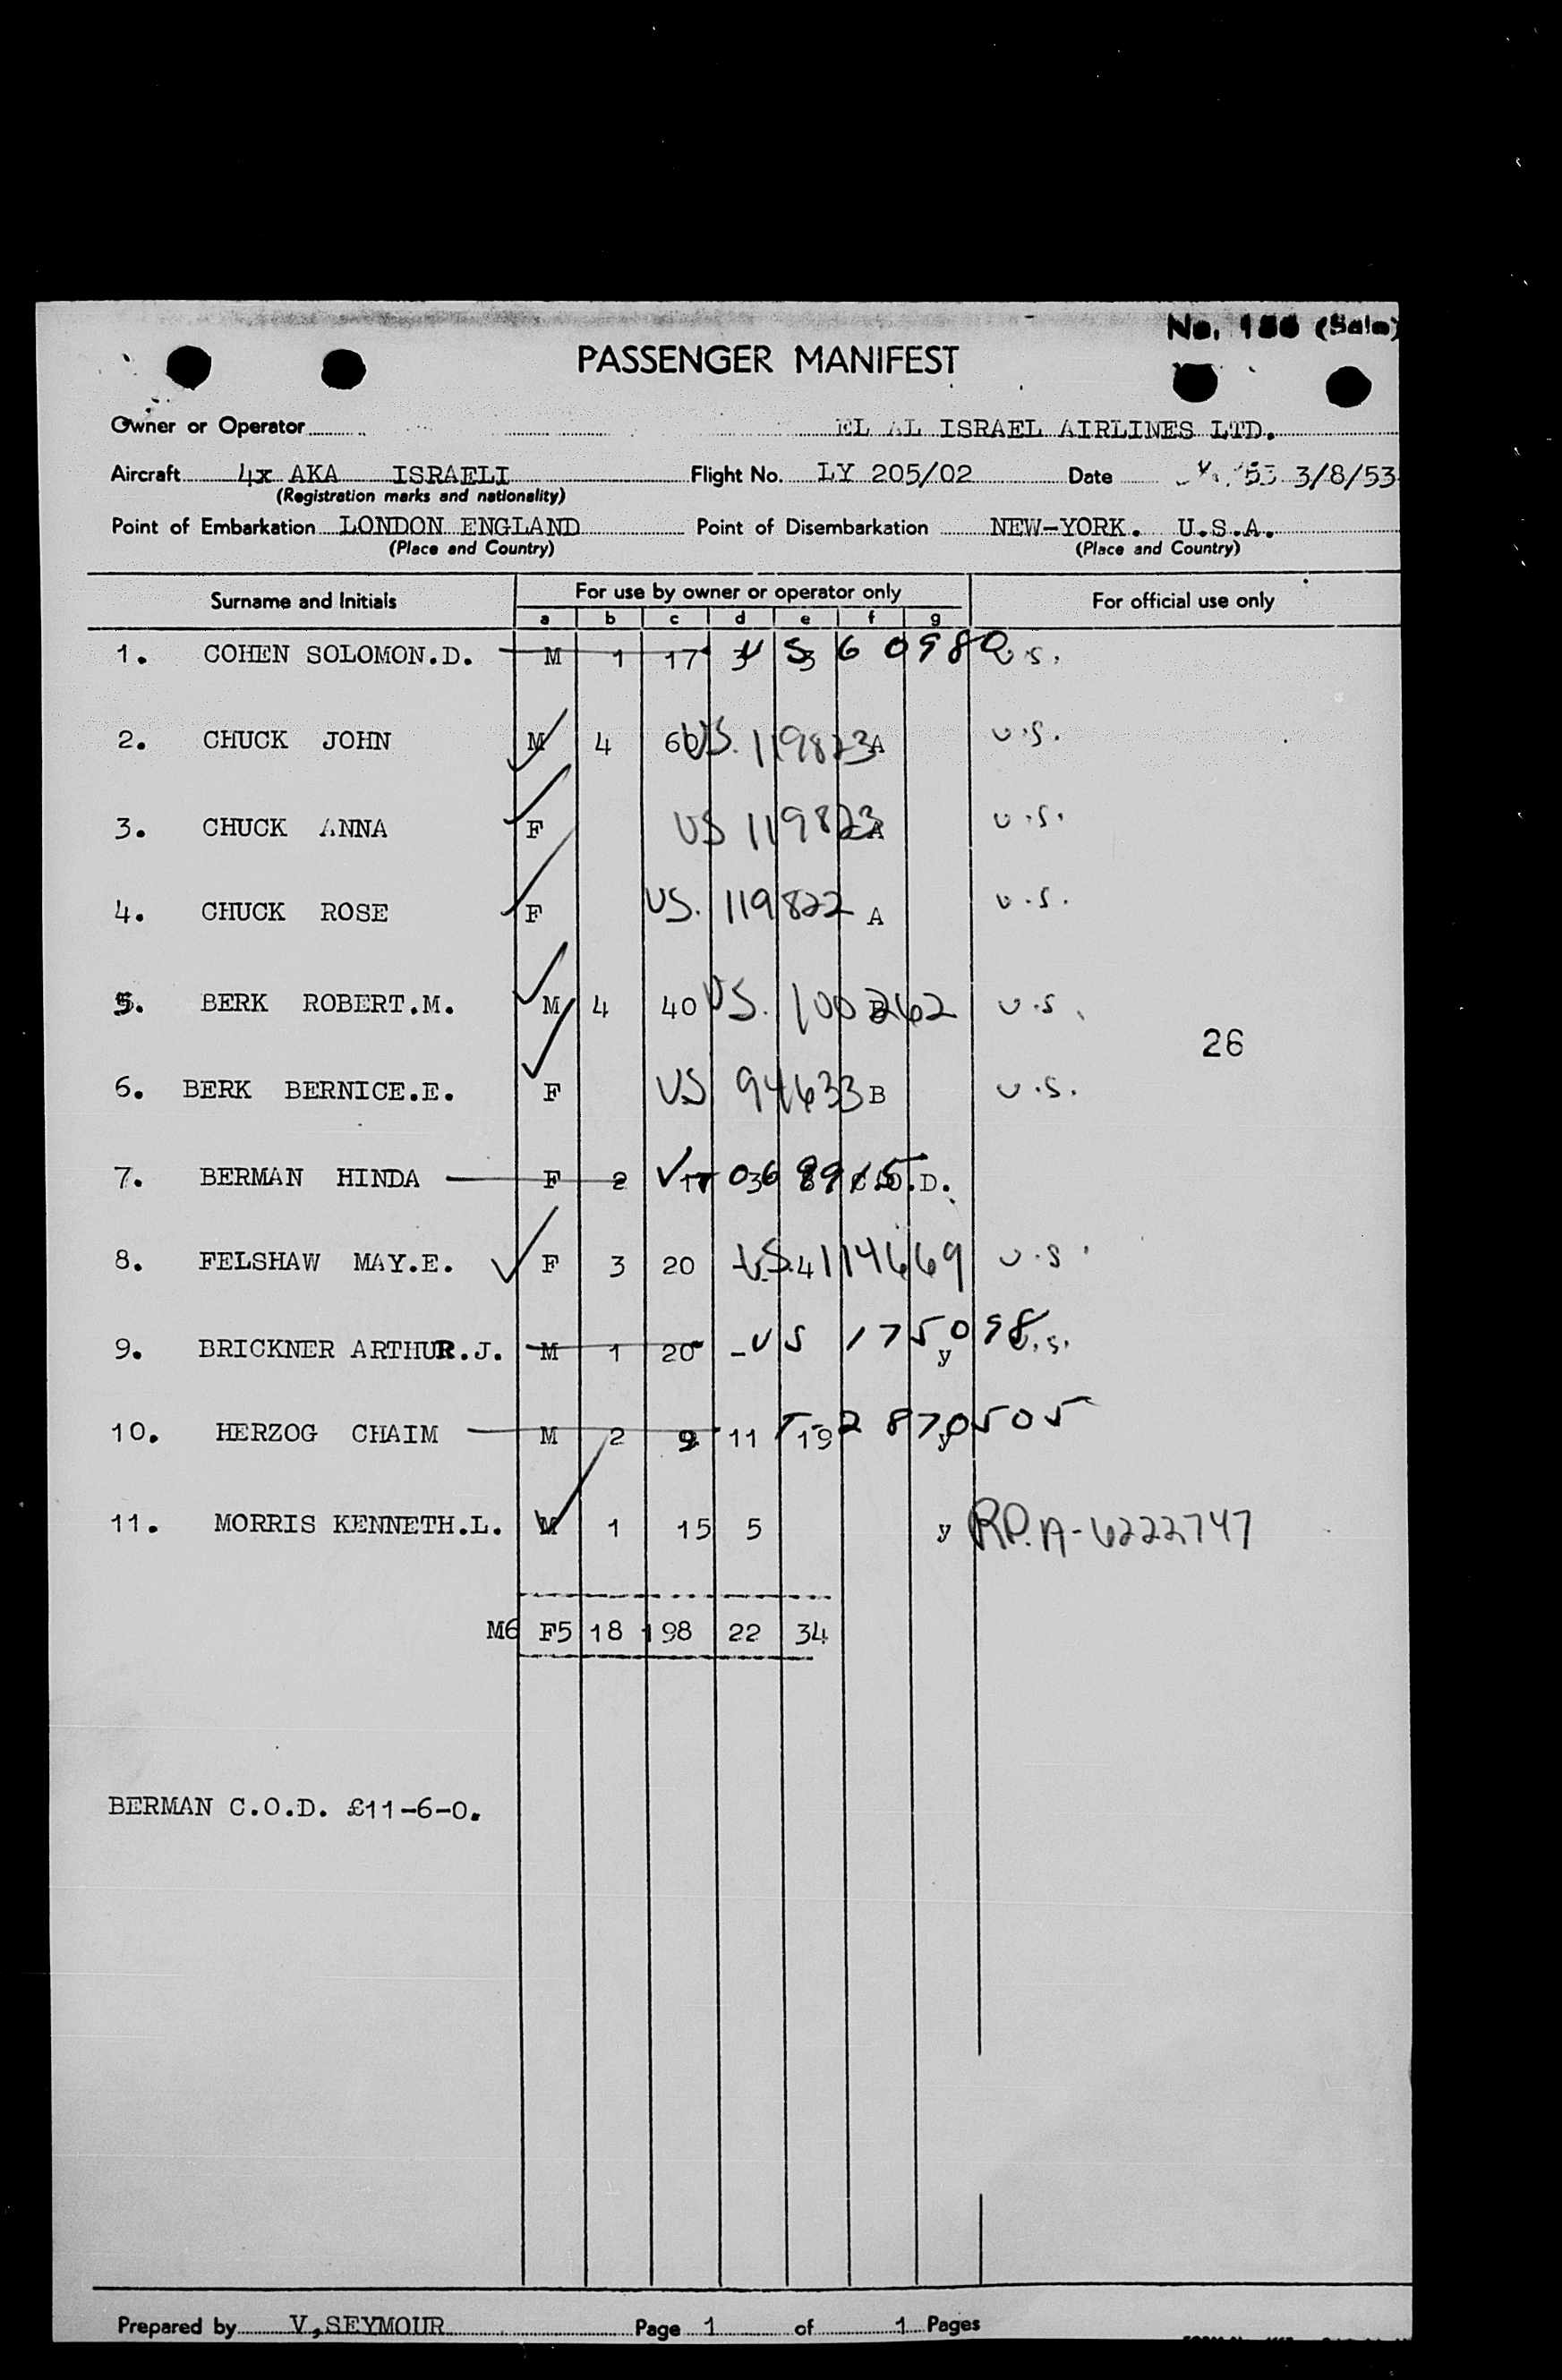 No. 156 (Sale)
PASSENGER MANIFEST
Owner or Operator EL AL ISRAEL AIRLINES LTD.
Aircraft 4x AKA ISRAELI Flight No. LY 205/02 Date 3/8/53
(Registration marks and nationality)
Point of Embarkation LONDON ENGLAND Point of Disembarkation NEW-YORK. U.S.A.
(Place and Country) (Place and Country)
Surname and Initials For use by owner or operator only For official use only
a b c d e f g
1. COHEN SOLOMON.D. M 1 17 3 US 60980 U.S.
2. CHUCK JOHN M 4 60 US. 119823 A U.S.
3. CHUCK ANNA F US 119823 A U.S.
4. CHUCK ROSE F US. 119822 A U.S.
5. BERK ROBERT.M. M 4 40 US. 100262 B U.S.
26
6. BERK BERNICE.E. F US 94633 B U.S.
7. BERMAN HINDA F 2 17 C.O.D.
8. FELSHAW MAY.E. F 3 20 - 4 US. 114669 U.S.
9. BRICKNER ARTHUR.J. M 1 20 - US 175098 y U.S.
10. HERZOG CHAIM M 2 9 11 19 T-2870505 y
11. MORRIS KENNETH.L. M 1 15 5 y RP. A-6222747
M6 F5 18 198 22 34
BERMAN C.O.D. £11-6-0.
Prepared by V,SEYMOUR Page 1 of 1 Pages